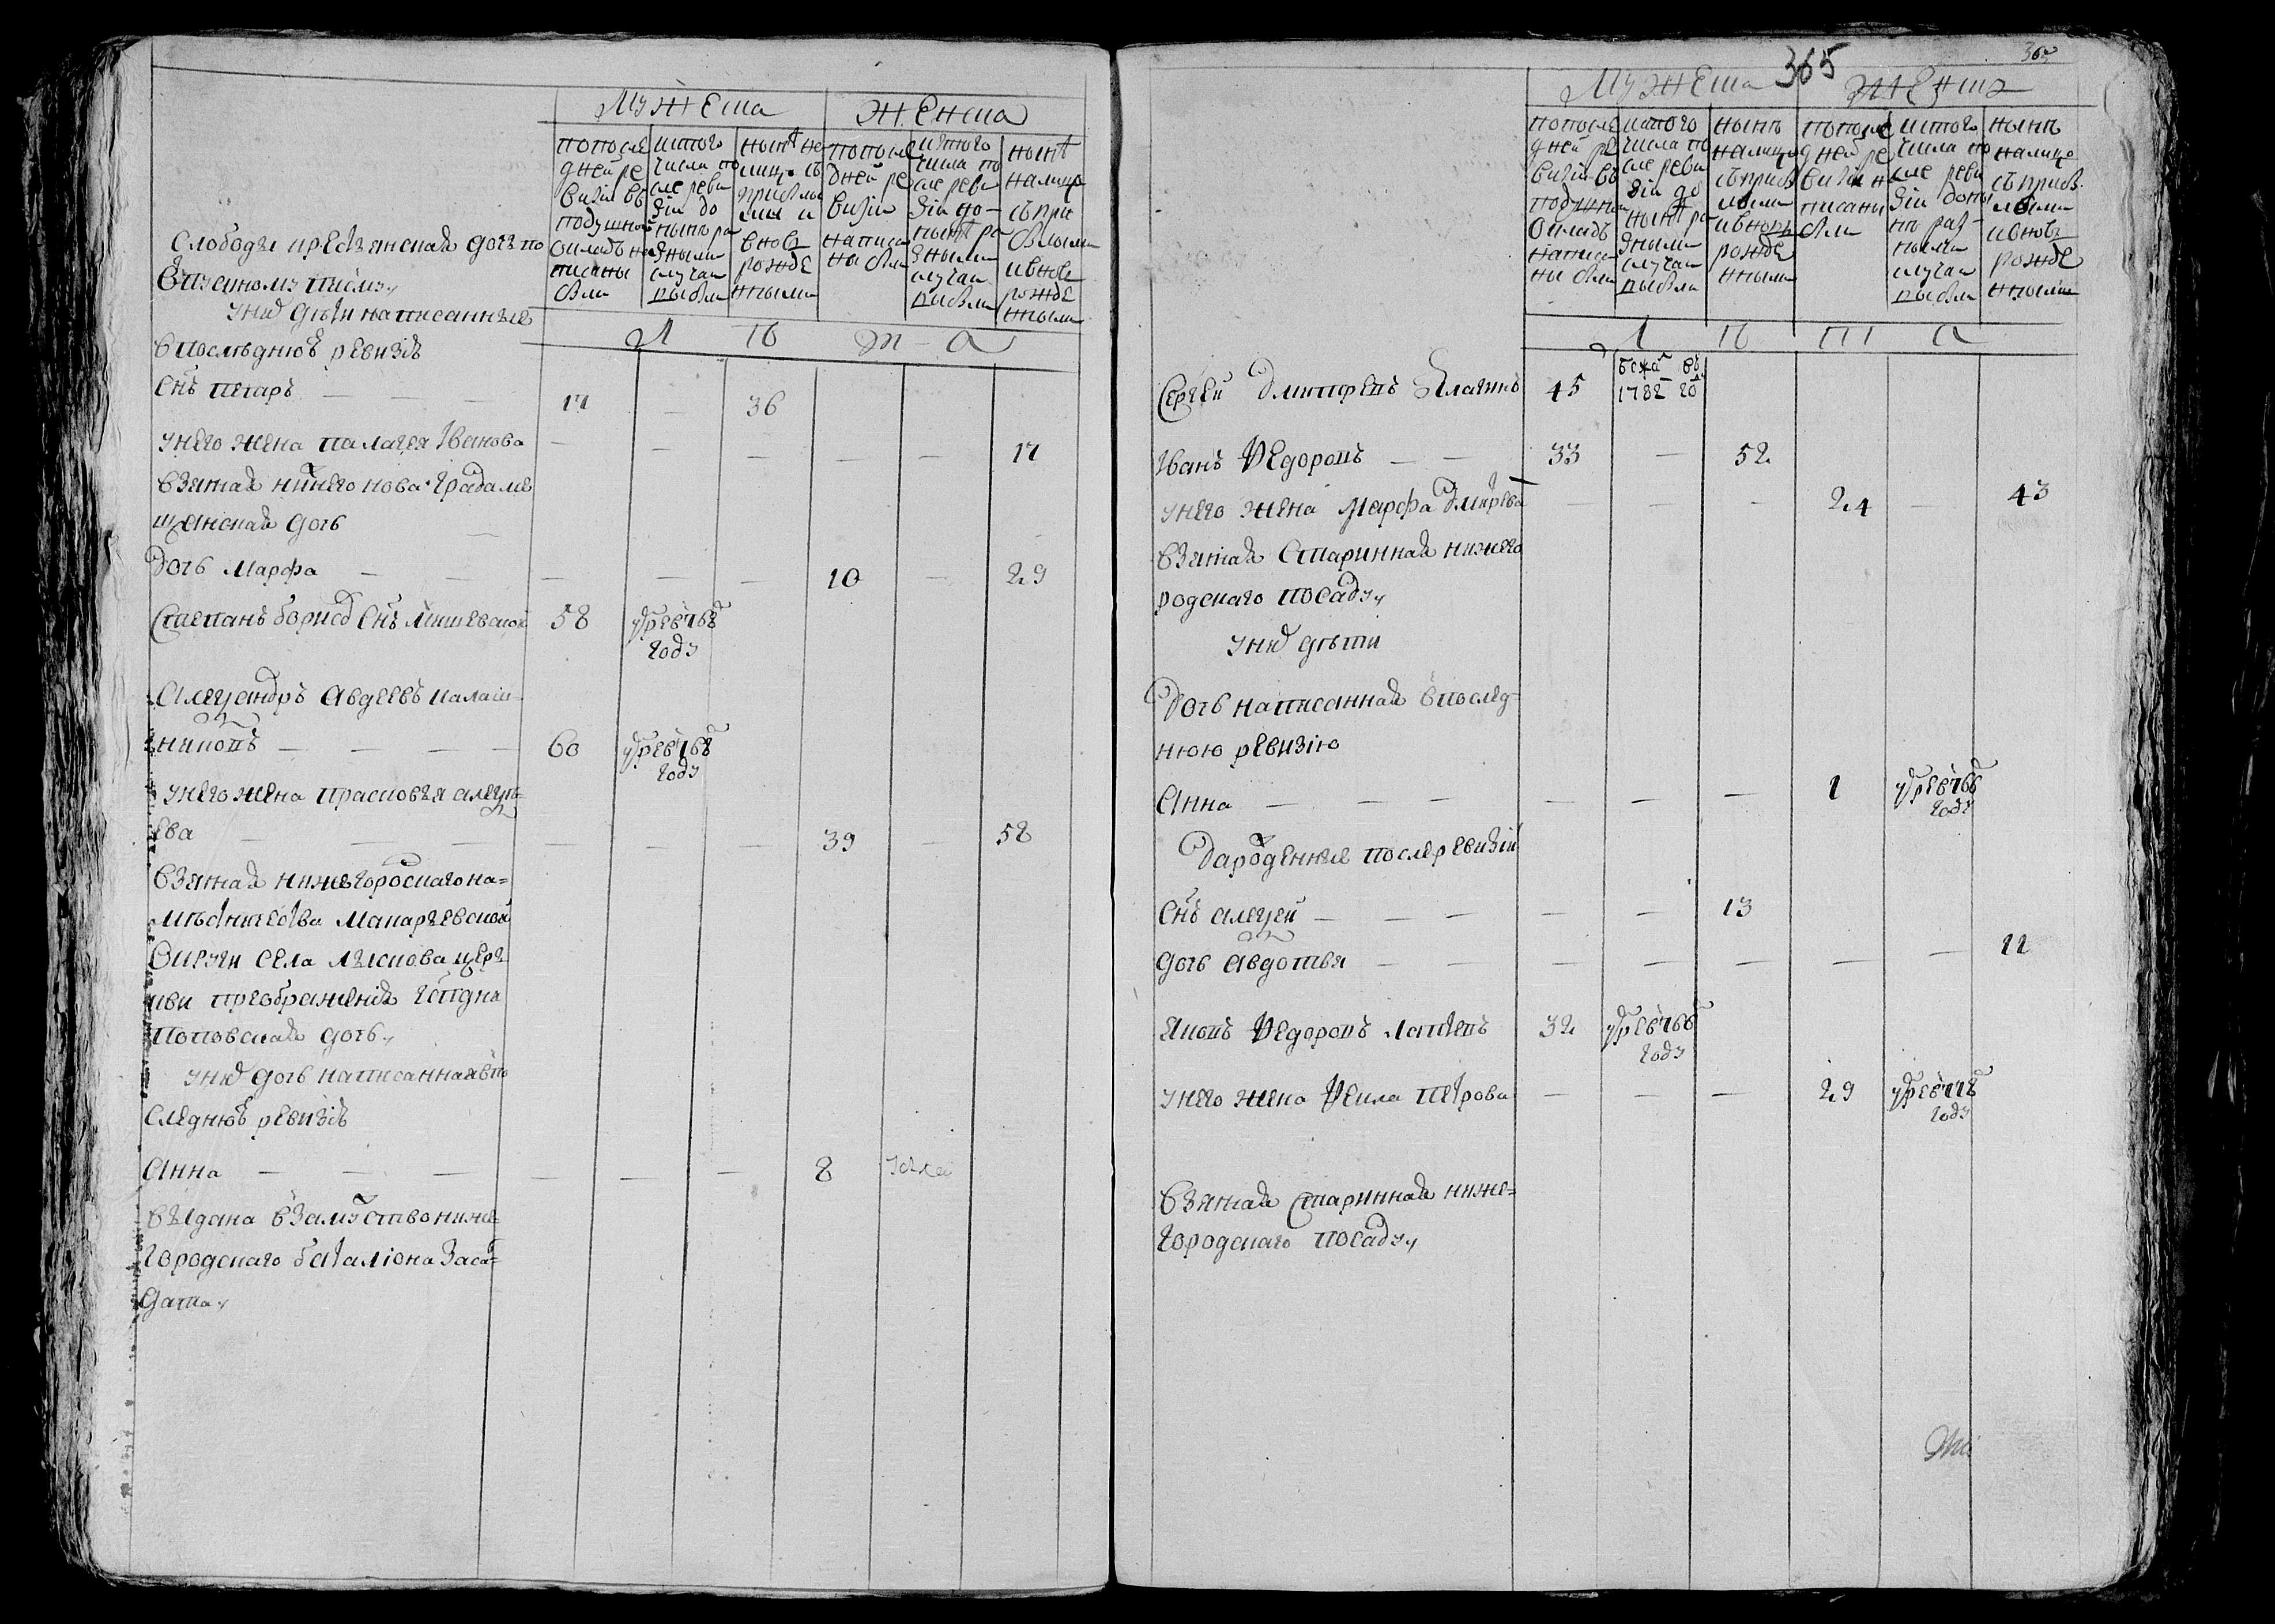 Мужеска
Женска
по после
дней ре
визіи въ
подушной
окладъ на
писаны
были
ис того
числа по
сле реви
зіи до
нынѣ ра
зными
случаи
выбыли
нынѣ на
лицо съ
прибылы
ми и
вновь
рожде
нными
по после
дней ре
визіи
написа
ны были
ис того
числа по
сле реви
зіи до
нынѣ ра
зными
случаи
выбыли
нынѣ
налицо
съ при
былыми
и вновь
рожде
нными
Л ѣ т а
слободы крестьянская дочь по
отпускному писму
у них дѣти написанные
в последнюю ревизію
снъ петръ — — — 17 — 36
у него жена палагея Иванова — — — — — 17
взятая нижнего нова града ме
щанская дочь
дочь марфа — — — — — 10 — 29
Степанъ борисов снъ 58 умре в 768
году
Александръ Авдеевъ калаш
никовъ — — — — 60 умре в 768
году
у него жена прасковья алекс
ева — — — — — — 39 — 58
взятая нижегороского на=
мѣсничества макарьевской
округи села лыскова церк
кви преображения гспдня
поповская дочь
у них дочь написанная в по
следнюю ревизію
Анна — — — — — — 8
выдана в замуство ниже=
городского баталіона за са=
дата
365
Мужеска
Женска
по после
дней ре
визіи въ
подушной
окладъ
написа
ны были
ис того
числа по
сле реви
зіи до
нынѣ ра
зными
случаи
выбыли
нынѣ
налицо
съ приб
лыми
и вновь
рожде
нными
по после
дней ре
визіи н
писаны
были
ис того
числа по
сле реви
зіи до ны
нѣ раз-
ными
случаи
выбыли
нынѣ
налицо
съ приб
лыми
и вновь
рожде
нными
Л ѣ т а
Сергей Дмитревъ 45 бежал въ
1782 го
Иванъ Федоровъ — — 33 — 52
у него жена Марфа Дмитрева — — — 24 — 43
взятая старинная нижего
родскаго посаду
у них дѣти
Дочь написанная в послед
нюю ревизію
Анна — — — — — — 1 умре в 766
году
Да рожденные после ревизіи
снъ алексей — — — — — 13
дочь авдотья — — — — — — — 11
Яковъ Федоровъ лаптевъ 32 умре в 766
году
у него жена Фекла петрова — — — 29 умре в 778
году
взятая старинная ниже=
городскаго посаду